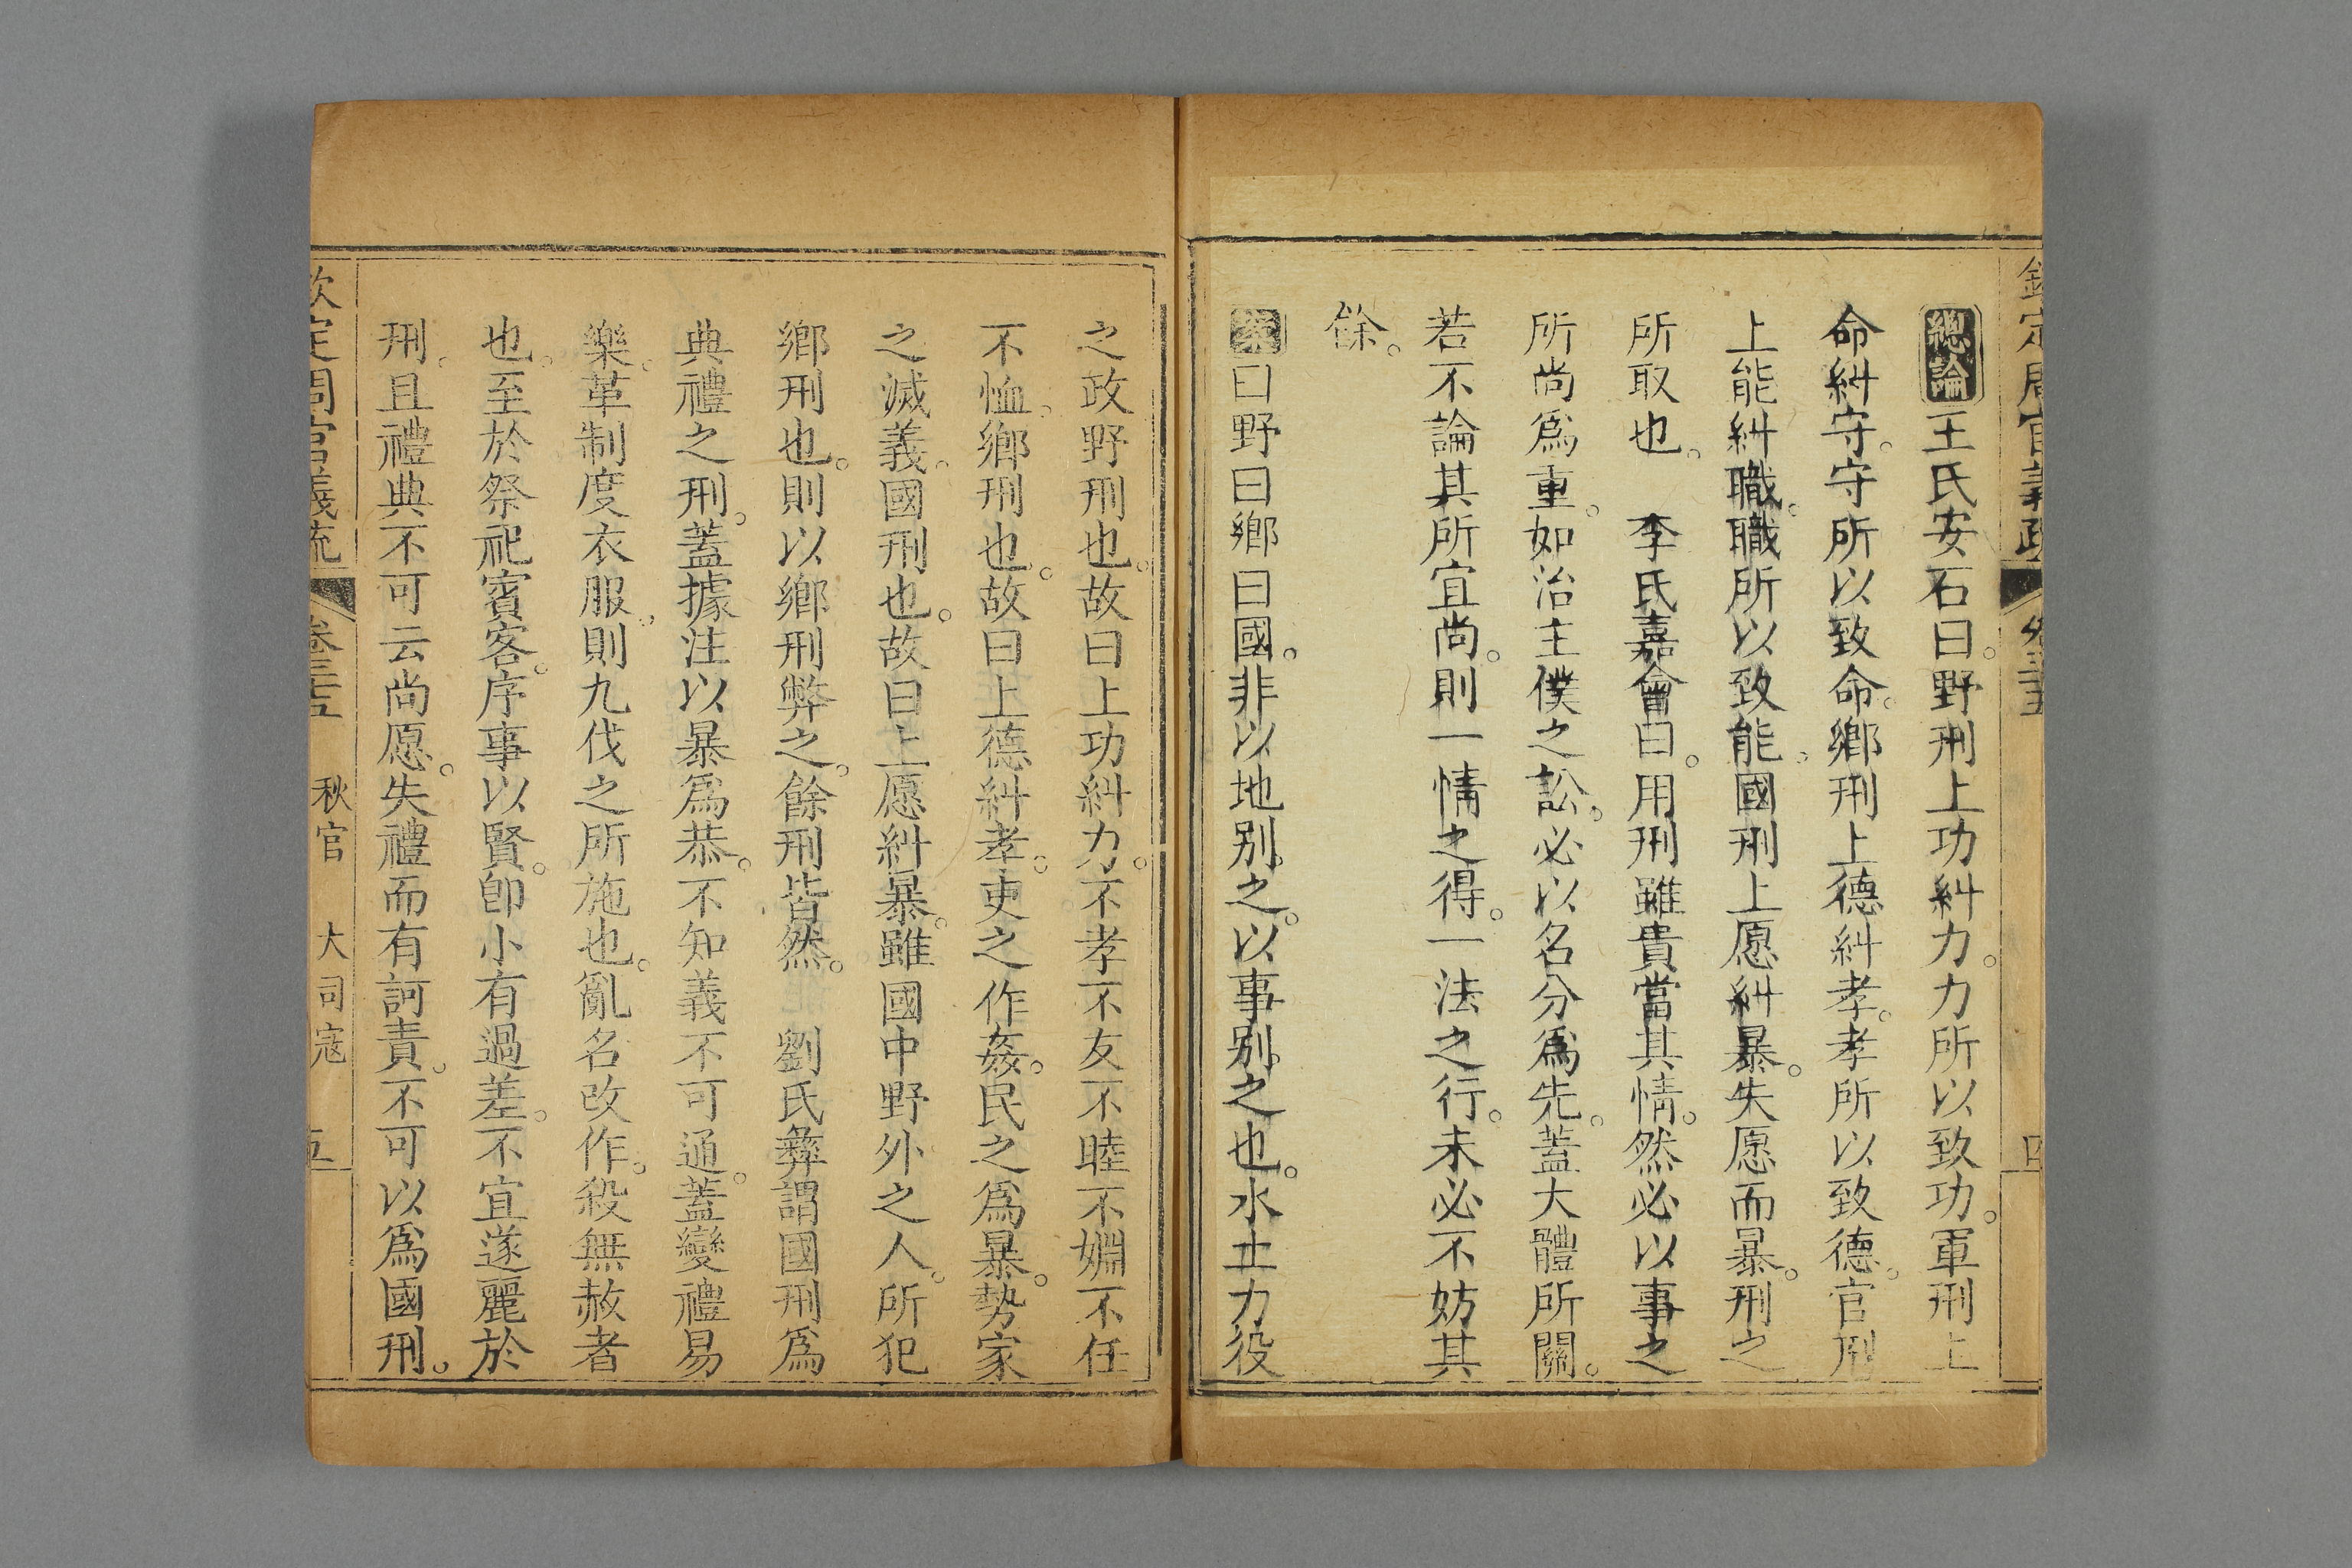 欽定周官義疏 卷三十五 四
總論王氏安石曰。野刑上功糾力。力所以致功。軍刑上
命糾守。守所以致命。鄉刑上德糾孝。孝所以致德。官刑
上能糾職。職所以致能。國刑上愿糾暴。失愿而暴。刑之
所取也。 李氏嘉會曰。用刑雖貴當其情。然必以事之
所尚爲重。如治主僕之訟。必以名分爲先。蓋大體所關。
若不論其所宜尚。則一情之得。一法之行。未必不妨其
餘。
案曰野曰鄉曰國。非以地别之。以事别之也。水土力役
之政野刑也。故曰上功糾力。不孝不友不睦不婣不任
不恤。鄉刑也。故曰上德糾孝。吏之作姦。民之爲暴。勢家
之滅義。國刑也。故曰上愿糾暴。雖國中野外之人。所犯
鄉刑也。則以鄉刑弊之。餘刑皆然。 劉氏彝謂國刑爲
典禮之刑。蓋據注以暴爲恭。不知義不可通。蓋變禮易
樂。革制度衣服。則九伐之所施也。亂名改作。殺無赦者
也。至於祭祀賓客。序事以賢。卽小有過差。不宜遂麗於
刑。且禮典不可云尚愿。失禮而有訶責。不可以爲國刑。
欽定周官義疏 卷三十五 秋官 大司寇 五